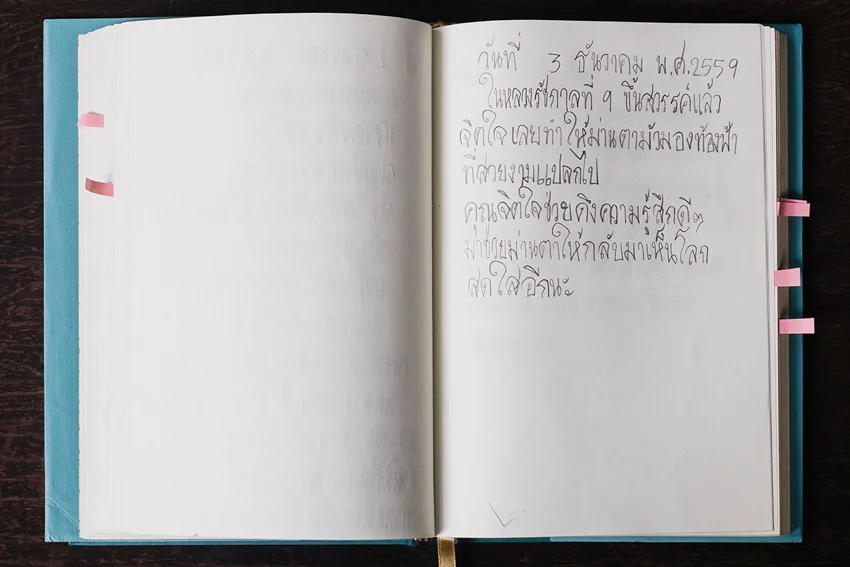 วันที่ 3 ธันวาคม พ.ศ.2559
ในหลวงรัชกาลที่ 9 ขึ้นสวรรค์แล้ว
จิตใจเลยทำให้ม่านตามัวมองท้องฟ้า
ที่สวยงามแปลกไป
คุณจิตใจช่วยดึงความรู้สึกดีๆ
มาช่วยม่านตาให้กลับมาเห็นโลก
สดใสอีกนะ